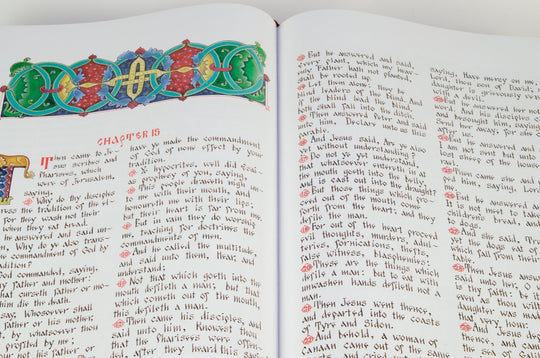 CHAPTER 15
Then came to Je-
sus scribes and
Pharisees, which
were of Jerusalem,
saying,
Why do thy disciples
the tradition of the el-
for they wash not their
when they eat bread.
he answered and said un-
Why do ye also trans-
the commandment of God by
tradition?
God commanded, saying,
thy father and mother:
that curseth father or mo-
him die the death.
say, Whosoever shall
father or his mother,
by whatsoever thou
profited by me;
not his father or
have ye made the commandment
of God of none effect by your
tradition.
Ye hypocrites, well did Esai-
as prophesy of you, saying,
This people draweth nigh un-
to me with their mouth, and
honoureth me with their lips;
but their heart is far from me.
But in vain they do worship
me, teaching for doctrines the
commandments of men.
And he called the multitude,
and said unto them, Hear, and
understand:
Not that which goeth into the
mouth defileth a man; but that
which cometh out of the mouth,
this defileth a man.
Then came his disciples, and
said unto him, Knowest thou
that the Pharisees were offen-
ded, after they heard this say-
But he answered and said,
Every plant, which my heav-
enly Father hath not planted,
shall be rooted up.
Let them alone: they be
blind leaders of the blind. And
if the blind lead the blind,
both shall fall into the ditch.
Then answered Peter and said
unto him, Declare unto us this
parable.
And Jesus said, Are ye also
yet without understanding?
Do not ye yet understand,
that whatsoever entereth in at
the mouth goeth into the belly,
and is cast out into the draught?
But those things which pro-
ceed out of the mouth come
forth from the heart; and they
defile the man.
For out of the heart proceed
evil thoughts, murders, adul-
teries, fornications, thefts,
false witness, blasphemies:
These are the things which
defile a man: but to eat with
unwashen hands defileth not a
man.
Then Jesus went thence,
and departed into the coasts
of Tyre and Sidon.
And behold, a woman of
Canaan came out of the
saying, Have mercy on me,
Lord, thou son of David;
daughter is grievously vexed
devil.
But he answered her not
word. And his disciples
and besought him, saying,
her away; for she
us.
But he answered and
I am not sent but unto
lost sheep of the
rael.
Then came she and
him, saying, Lord,
But he answered
It is not meet to take
children's bread
to dogs.
And she said, Truth
yet the dogs eat of
which fall from their
table.
Then Jesus answered
said unto her, O
is thy faith: be it
even as thou wilt.
that was made
from that very hour.
And Jesus